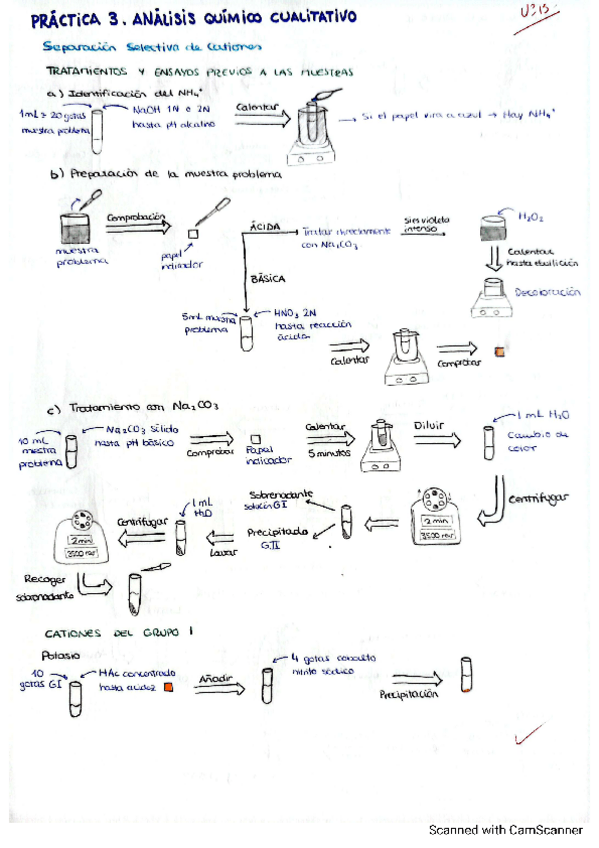 PRÁCTICA 3. ANÁLISIS QUÍMICO CUALITATIVO
Separación Selectiva de Cationes
TRATAMIENTOS Y ENSAYOS PREVIOS A LAS MUESTRAS
a) Identificación del NH₄⁺
1mL ≈ 20 gotas
muestra problema
NaOH 1N o 2N
hasta pH alcalino
Calentar
Si el papel vira a azul → Hay NH₄⁺
b) Preparación de la muestra problema
muestra
problema
Comprobación
papel
indicador
ÁCIDA
Tratar directamente
con Na₂CO₃
si es violeta
intenso
H₂O₂
Calentar
hasta ebullición
Decoloración
BÁSICA
5mL muestra
problema
HNO₃ 2N
hasta reacción
ácida
Calentar
Comprobar
c) Tratamiento con Na₂CO₃
10 mL
muestra
problema
Na₂CO₃ sólido
hasta pH básico
Comprobar
Papel
indicador
Calentar
5 minutos
Diluir
1 mL H₂O
Cambio de
color
Centrifugar
2 min
3500 rev
Sobrenadante
solución GI
Precipitado
G.II
Lavar
1 mL
H₂O
Centrifugar
2 min
3500 rev
Recoger
sobrenadante
CATIONES DEL GRUPO I
Potasio
10
gotas GI
HAc concentrado
hasta acidez
Añadir
4 gotas cobalto
nitrito sódico
Precipitación
Scanned with CamScanner